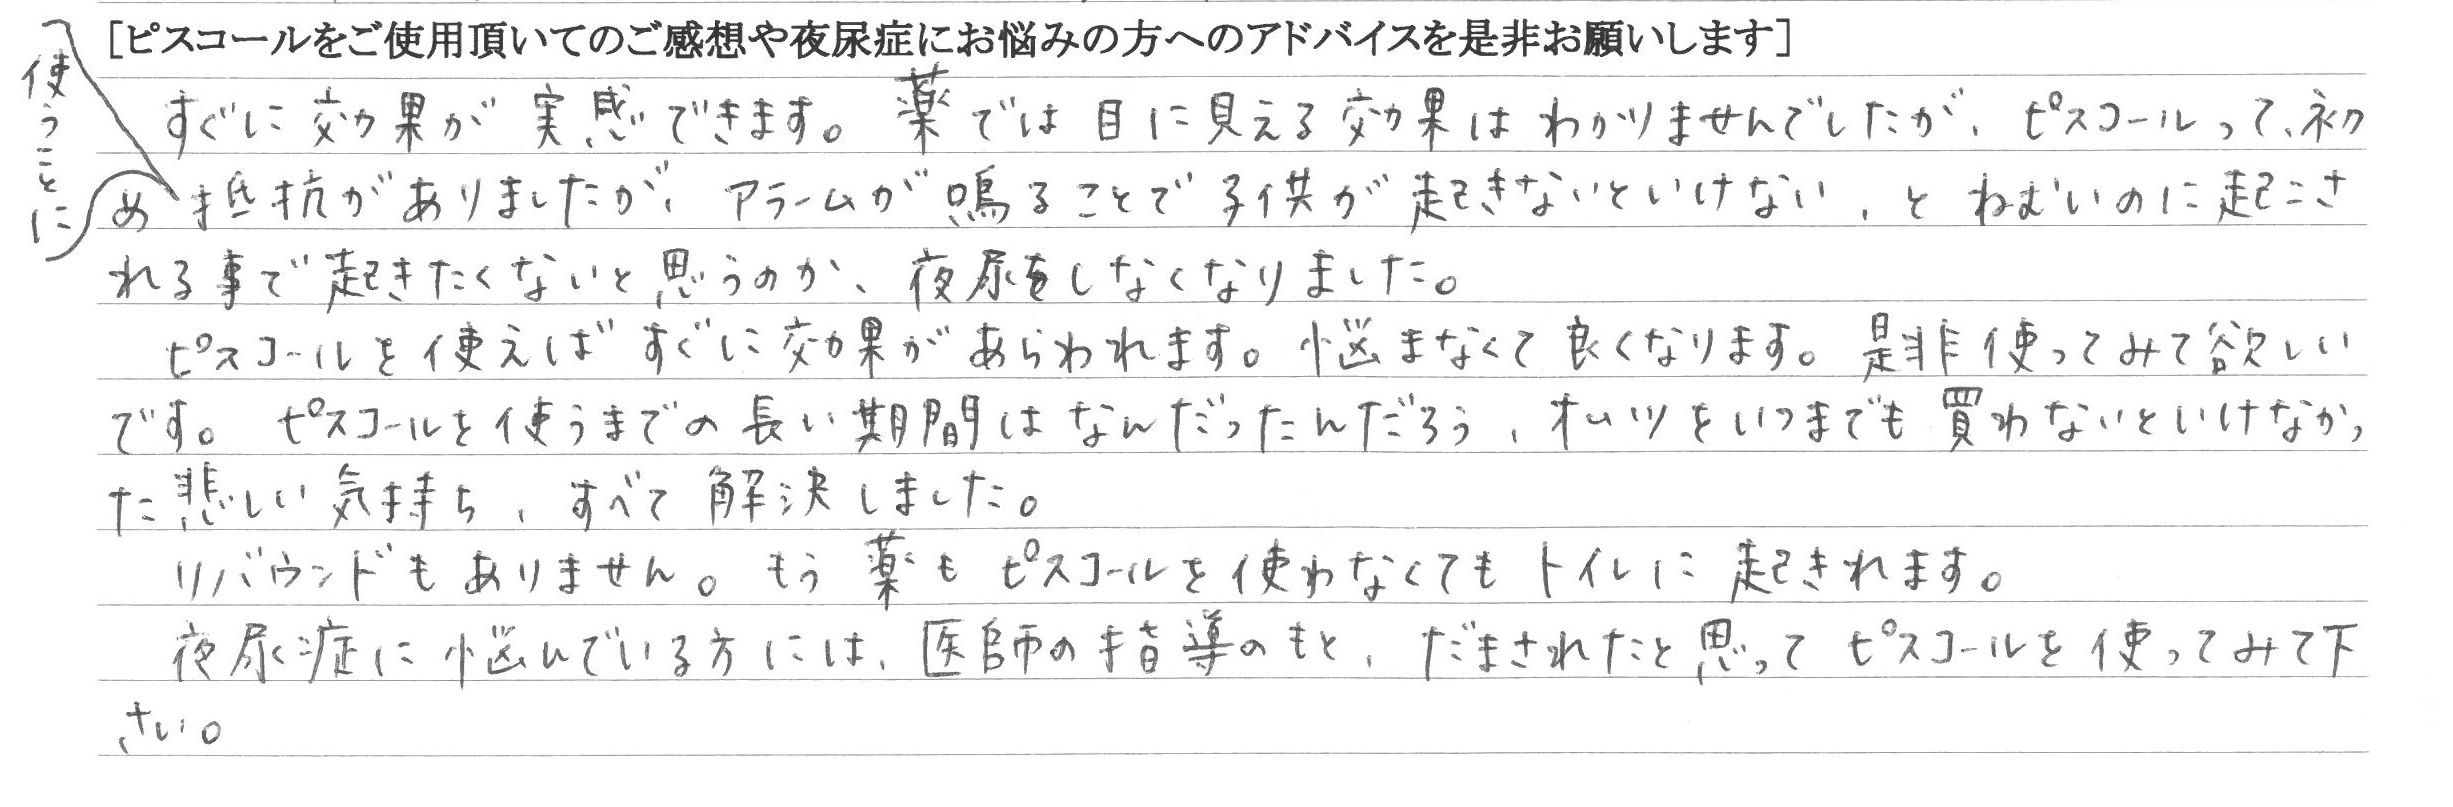 [ピスコールをご使用頂いてのご感想や夜尿症にお悩みの方へのアドバイスを是非お願いします]
すぐに効果が実感できます。薬では目に見える効果はわかりませんでしたが、ピスコールって、初
め使うことに抵抗がありましたが、アラームが鳴ることで子供が起きないといけない、とねむいのに起こさ
れる事で起きたくないと思うのか、夜尿をしなくなりました。
ピスコールを使えばすぐに効果があらわれます。悩まなくて良くなります。是非使ってみて欲しい
です。ピスコールを使うまでの長い期間はなんだったんだろう、オムツをいつまでも買わないといけなかっ
た悲しい気持ち、すべて解決しました。
リバウンドもありません。もう薬もピスコールを使わなくてもトイレに起きれます。
夜尿症に悩んでいる方には、医師の指導のもと、だまされたと思ってピスコールを使ってみて下
さい。